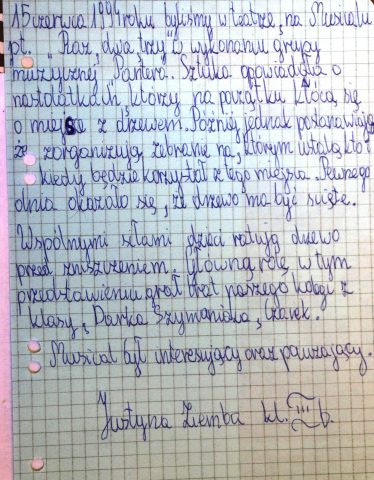 15 czerwca 1994 roku byliśmy w teatrze, na Musicalu
pt. "Raz, dwa, trzy" w wykonaniu grupy
muzycznej "Pantera". Sztuka opowiadała o
nastolatkach, którzy na początku kłócą się
o miejsce z drzewem. Później jednak postanawiają
że zorganizują zebranie na, którym ustalą kto i
kiedy będzie korzystał z tego miejsca. Pewnego
dnia okazało się, że drzewo ma być ścięte.
Wspólnymi siłami dzieci ratują drzewo
przed zniszczeniem. Główną rolę w tym
przedstawieniu grał brat naszego kolegi z
klasy, Darka Szymaniaka, Czarek.
Musical był interesujący oraz pouczający.
Justyna Ziemba kl. III b.